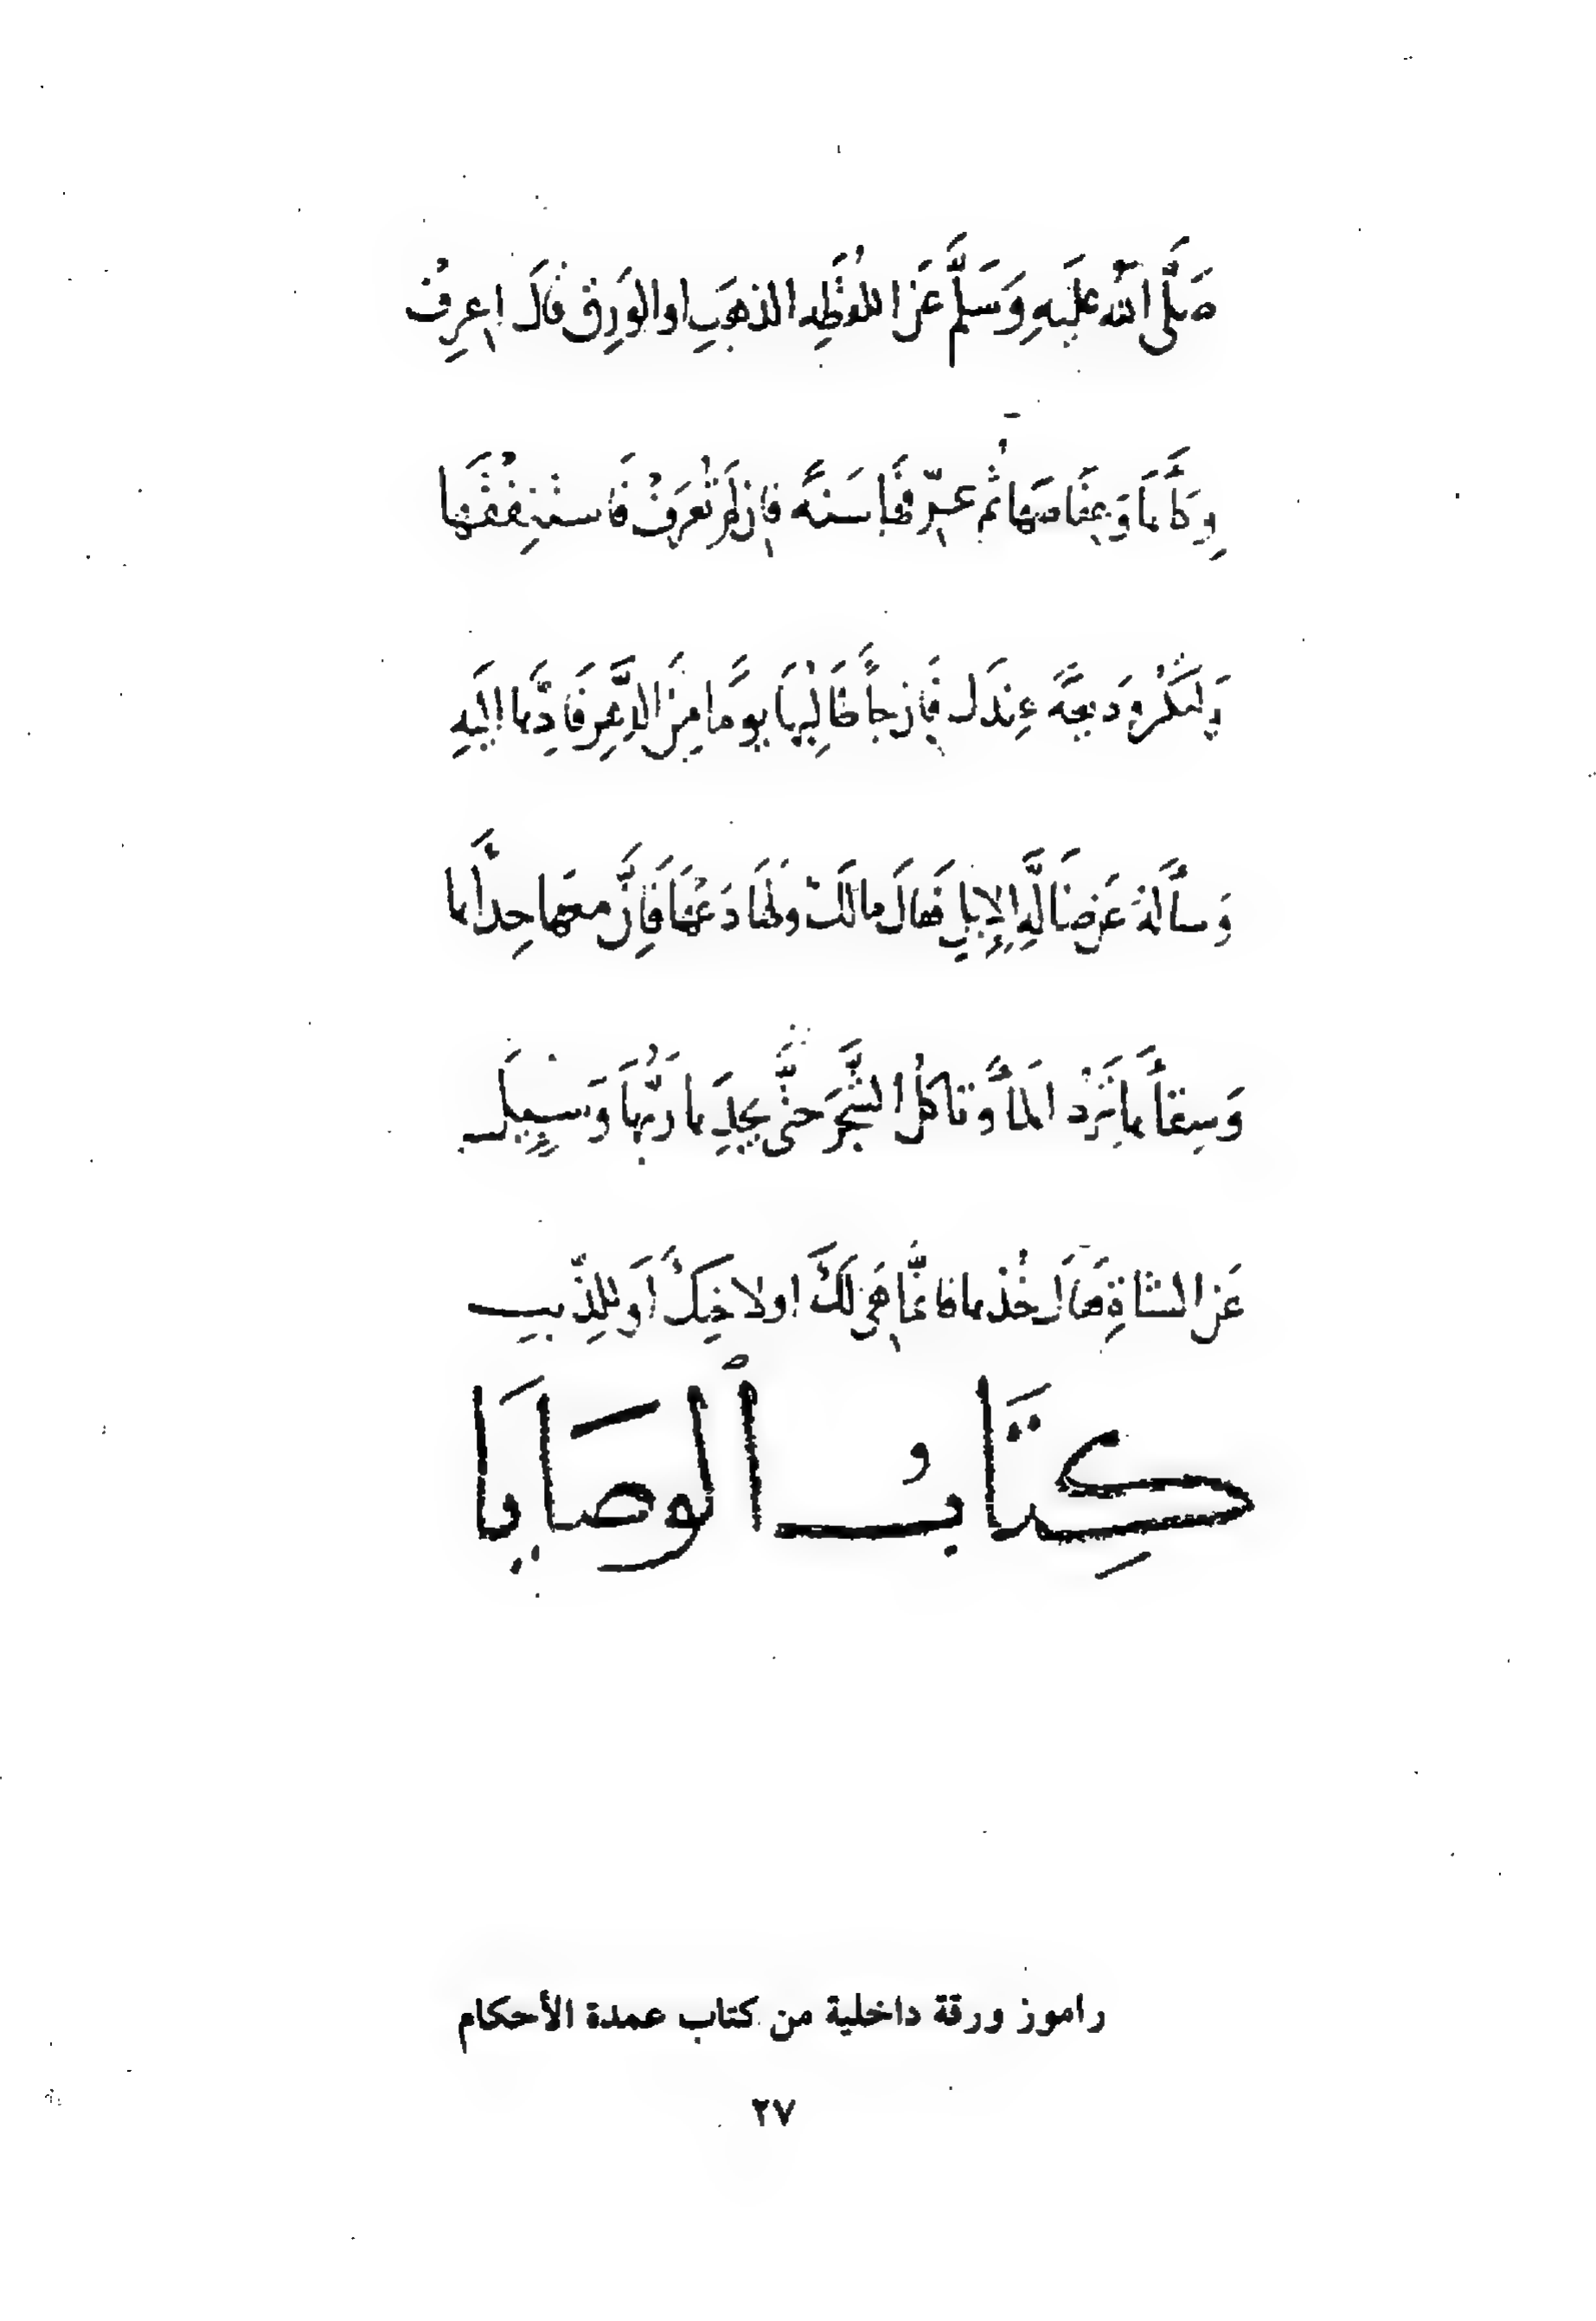 صَلَّى اللّٰه عَلَيهِ وَسَلَّم عَن اللُقَطَهِ الذهَبِ او الوَرِق فَالَ اِعرِفْ
وِكَأَهَا وَعِفَاصَهَا ثُم عَرِّفْهَا سَنةً فإِن لَم تُعرَفْ فَاستَنفِقْهَا
وَلتَكُن وَديعَةً عِندَك فَإِن جأَ طَالِبُهَا يومًا مِنَ الدَّهِرِ فَادِّهَا اِلَيهِ
وَسأَلَهُ عَن ضَالَّهِ الإِبِلِ فَقَالَ مالَكَ ولَهَا دَعْهَا فَإِنَّ معَهَا حِذَأَهَا
وَسِقأَهَا تَرِدُ المأَ وَتاكلُ الشَّجَرَ حتَّى يَجِدَهَا رَبُّهَا وَسُيِلَ
عَن الشاةِ فقَالَ خُذهَا فَاِنَّمَا هىَ لَكَ اولاخِيكَ اَو للِذّيبِ
كِتَابُ الوَصَايَا
راموز ورقة داخلية من كتاب عمدة الأحكام
٢٧